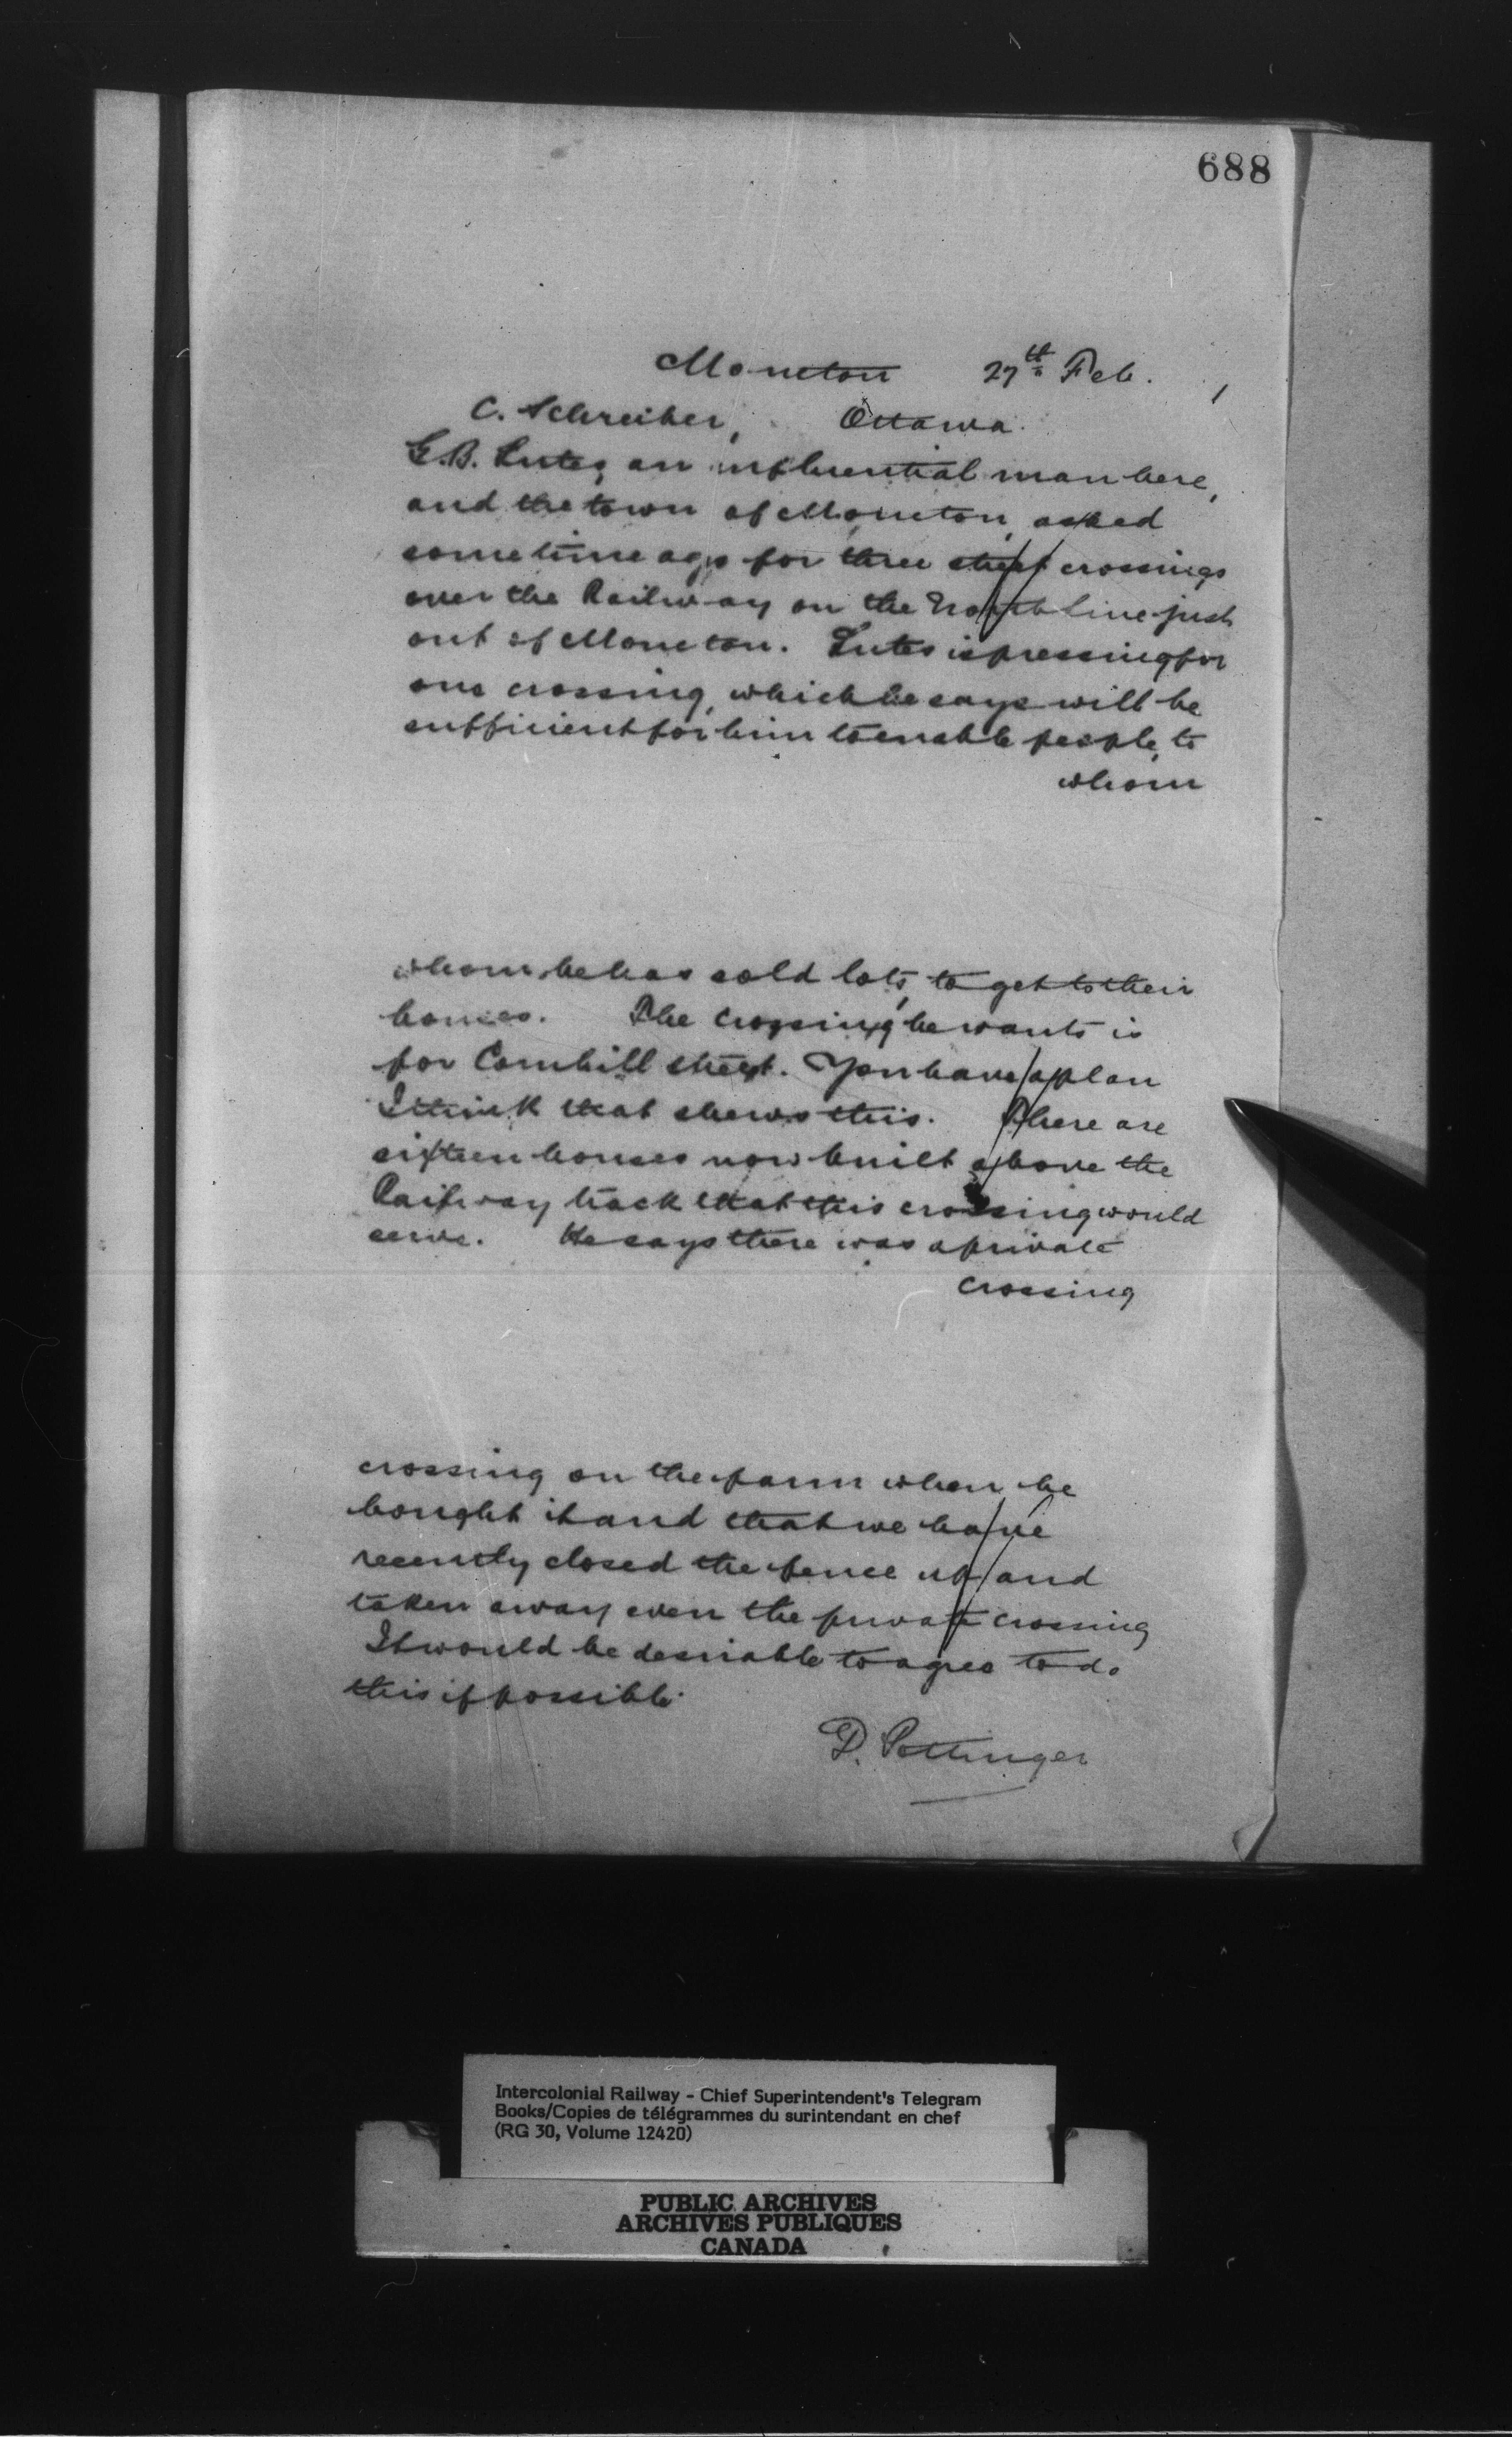 688
Moncton 27th Feb.
C. Schreiber, Ottawa.
G.B. Lutes, an influential man here,
and the town of Moncton, asked
some time ago for three street crossings
over the Railway on the North line just
out of Moncton. Lutes is pressing for
one crossing, which he says will be
sufficient for him to enable people, to
whom
whom he has sold lots, to get to their
houses. The crossing he wants is
for Cornhill street. You have a plan
I think that shews this. There are
sixteen houses now built above the
Railway track that this crossing would
serve. He says there was a private
crossing
crossing on the farm when he
bought it and that we have
recently closed the fence up and
taken away even the private crossing
It would be desirable to agree to do
this if possible.
D. Pottinger
Intercolonial Railway - Chief Superintendent's Telegram
Books/Copies de télégrammes du surintendant en chef
(RG 30, Volume 12420)
PUBLIC ARCHIVES
ARCHIVES PUBLIQUES
CANADA